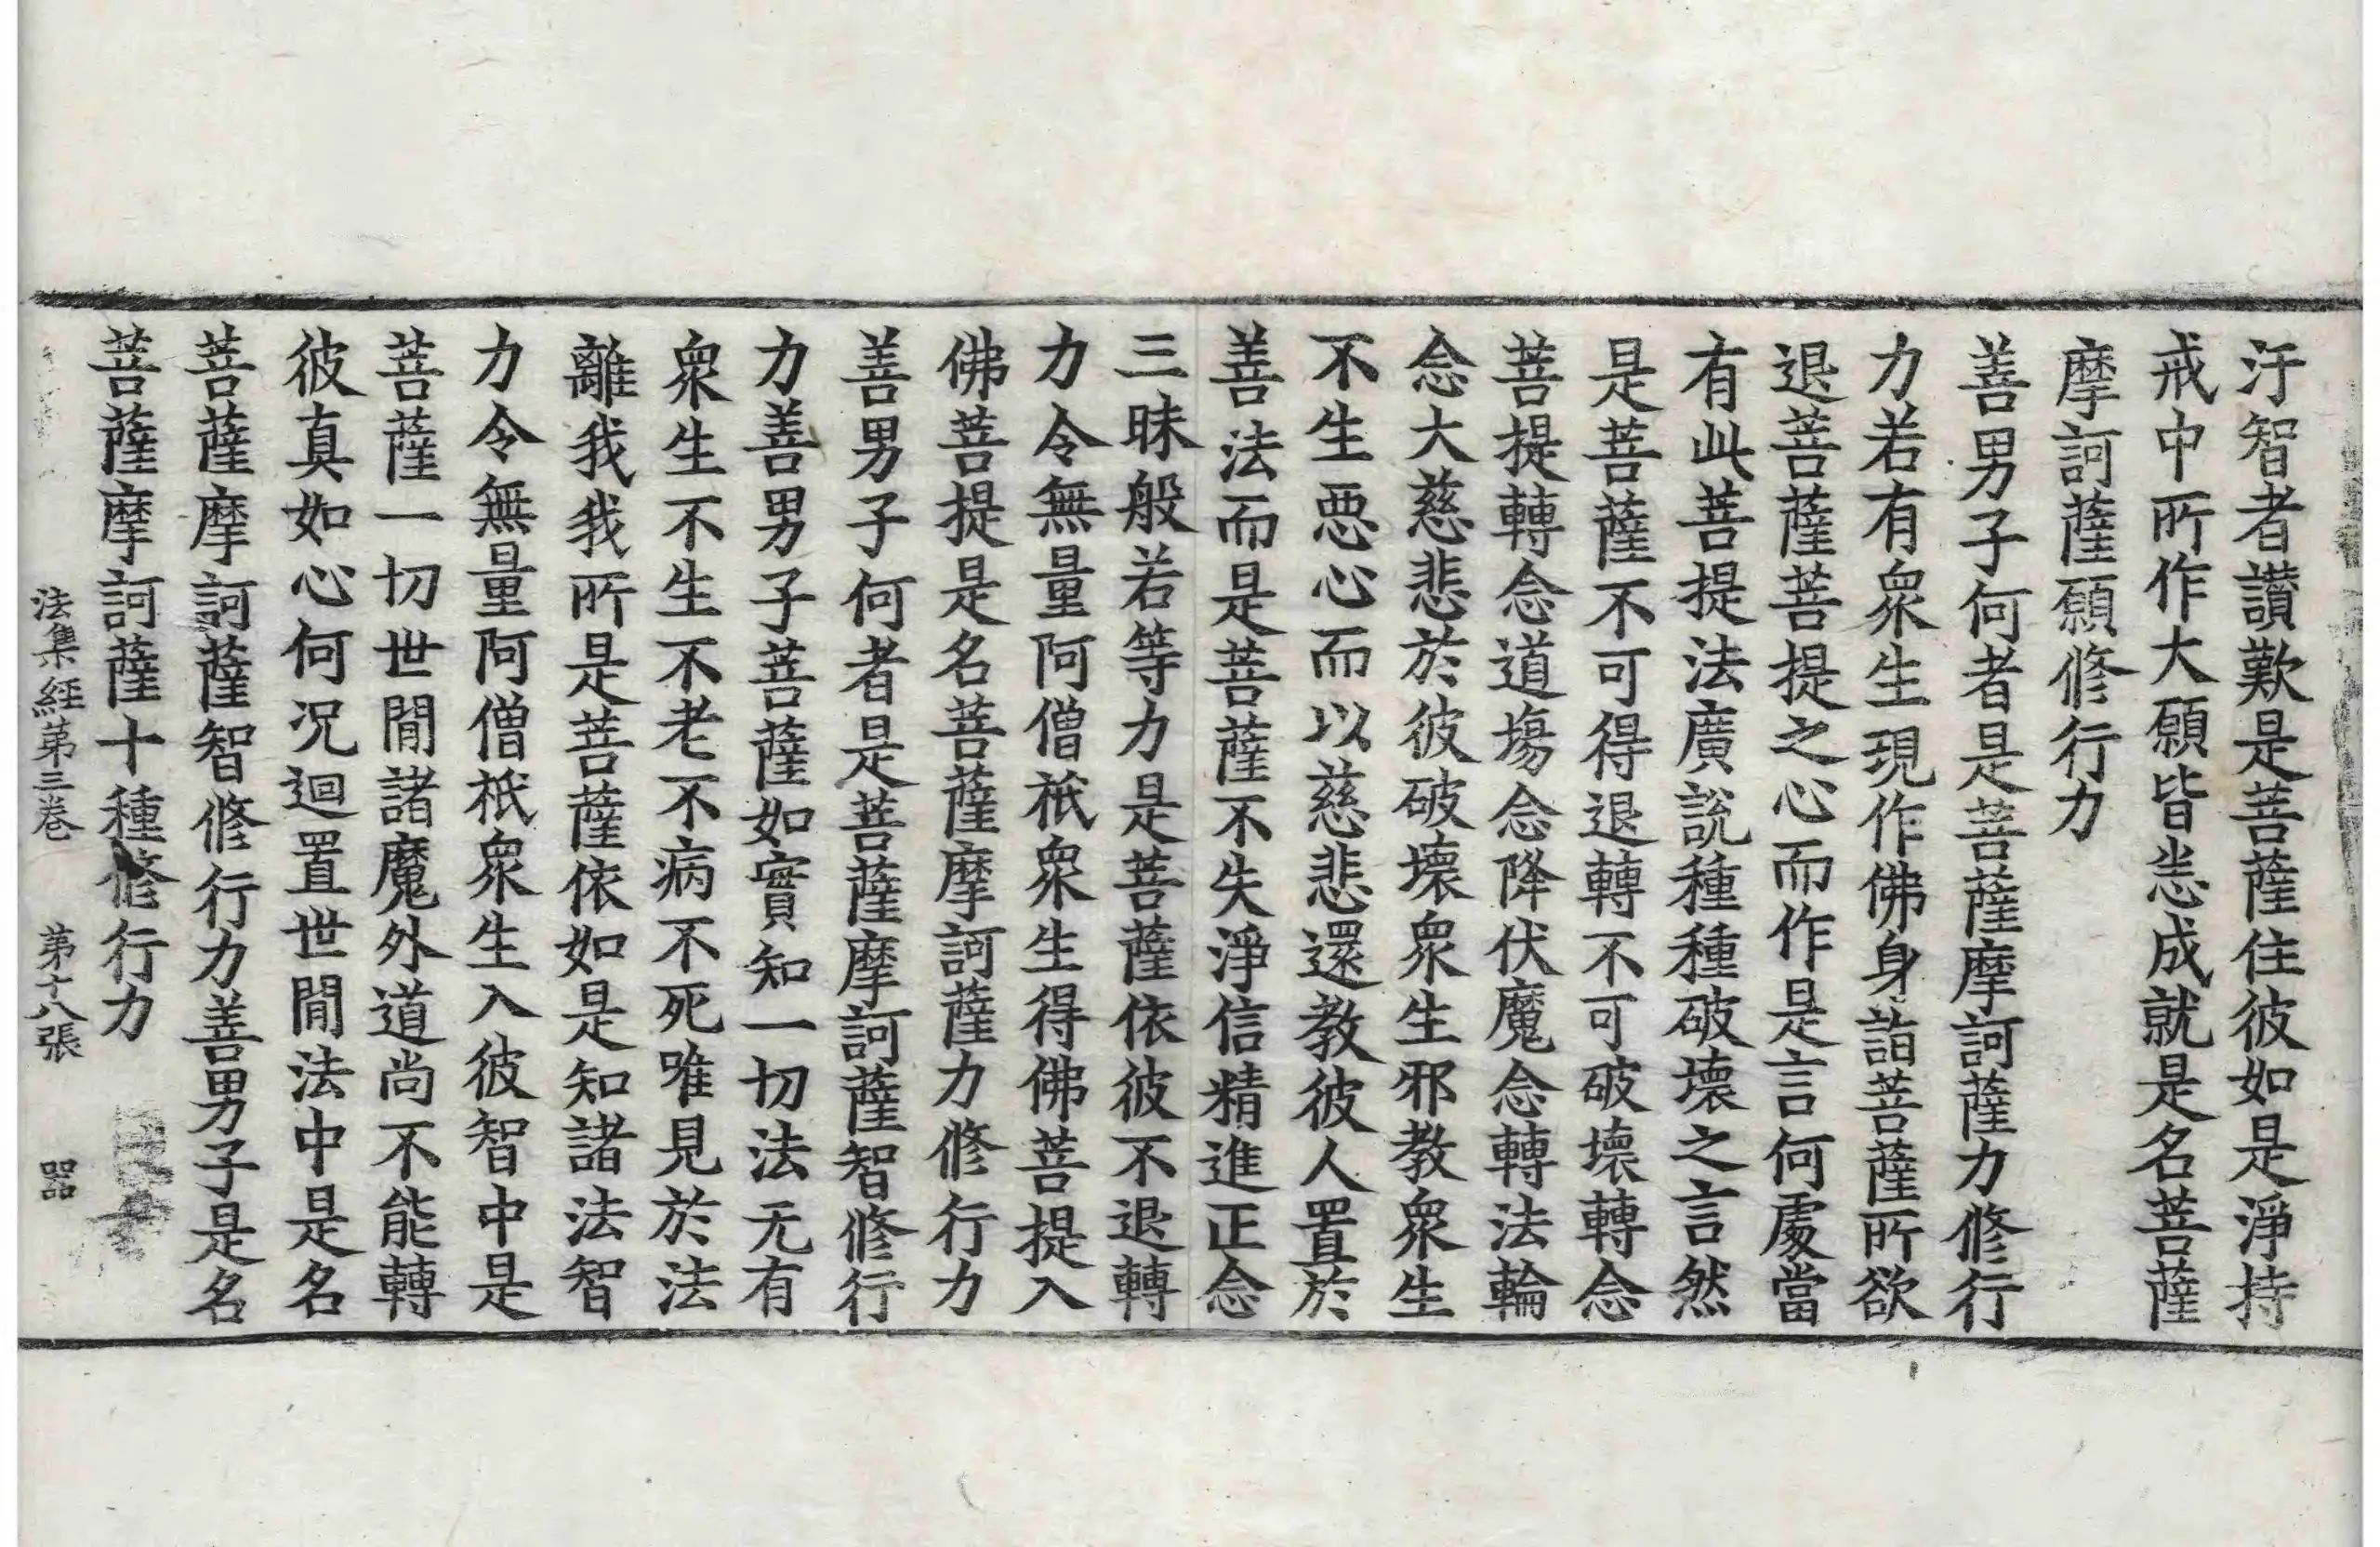 汙智者讃歎是菩薩住彼如是淨持
戒中所作大願皆恙成就是名菩薩
摩訶薩願修行力
善男子何者是菩薩摩訶薩力修行
力若有衆生現作佛身詣菩薩所欲
退菩薩菩提之心而作是言何處當
有此菩提法廣說種種破壞之言然
是菩薩不可得退轉不可破壞轉念
菩提轉念道塲念降伏魔念轉法輪
念大慈悲於彼破壞衆生邪教衆生
不生惡心而以慈悲還教彼人置於
善法而是菩薩不失淨信精進正念
三昧般若等力是菩薩依彼不退轉
力令無量阿僧祇衆生得佛菩提入
佛菩提是名菩薩摩訶薩力修行力
善男子何者是菩薩摩訶薩智修行
力善男子菩薩如實知一切法无有
衆生不生不老不病不死唯見於法
離我我所是菩薩依如是知諸法智
力令無量阿僧祇衆生入彼智中是
菩薩一切世閒諸魔外道尚不能轉
彼真如心何況迴置世閒法中是名
菩薩摩訶薩智修行力善男子是名
菩薩摩訶薩十種修行力
法集經第三卷 第十八張 器